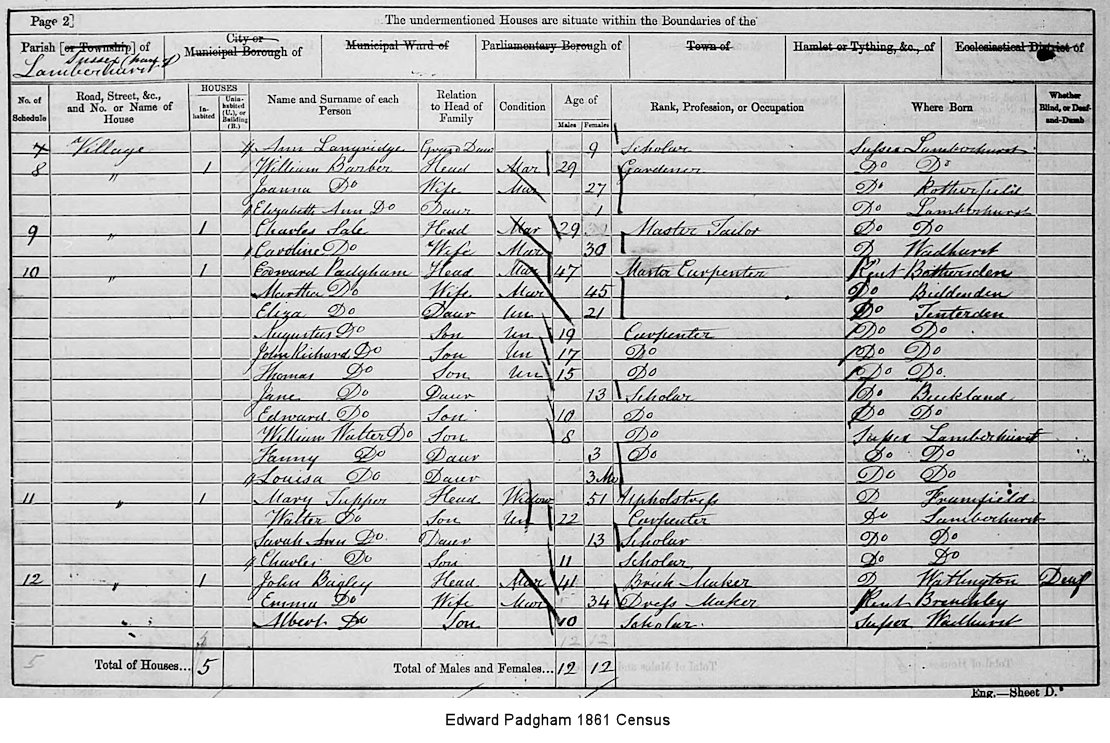 Page 2]
The undermentioned Houses are situate within the Boundaries of the
Parish [or Township] of City or Municipal Borough of Municipal Ward of Parliamentary Borough of Town of Hamlet or Tything, &c., of Ecclesiastical District of
Sussex (part of
Lamberhurst
No. of Schedule Road, Street, &c., and No. or Name of House HOUSES Inhabited Uninhabited (U.), or Building (B.) Name and Surname of each Person Relation to Head of Family Condition Age of Males Females Rank, Profession, or Occupation Where Born Whether Blind, or Deaf-and-Dumb
7 Village Ann Langridge Daur 9 Scholar Sussex Lamberhurst
8 " 1 William Barber Head Mar 29 Gardener Do Do
Joanna Do Wife Mar 27 Do Rotherfield
Elizabeth Ann Do Daur 1 Do Lamberhurst
9 " 1 Charles Sale Head Mar 29 Master Tailor Do Do
Caroline Do Wife Mar 30 D Wadhurst
10 " 1 Edward Padgham Head Mar 47 Master Carpenter Kent Bethersden
Martha Do Wife Mar 45 Do Biddenden
Eliza Do Daur Un 21 Do Tenterden
Augustus Do Son Un 19 Carpenter Do Do
John Richard Do Son Un 17 Do Do Do
Thomas Do Son Un 15 Do Do Do
Jane Do Daur 13 Scholar Do Buckland
Edward Do Son 10 Do Do Do
William Walter Do Son 8 Do Sussex Lamberhurst
Fanny Do Daur 3 Do Do Do
Louisa Do Daur 3 Mo Do Do
11 " 1 Mary Tupper Head Widow 51 Upholstress D Framfield
Walter Do Son Un 22 Carpenter Do Lamberhurst
Sarah Ann Do Daur 13 Scholar Do Do
Charles Do Son 11 Scholar Do Do
12 " 1 John Bagley Head Mar 41 Brick Maker D Watlington Deaf
Emma Do Wife Mar 34 Dress Maker Kent Brenchley
Albert Do Son 10 Scholar Sussex Wadhurst
12 12
5 Total of Houses... 5 Total of Males and Females... 12 12
Eng.—Sheet D.
Edward Padgham 1861 Census